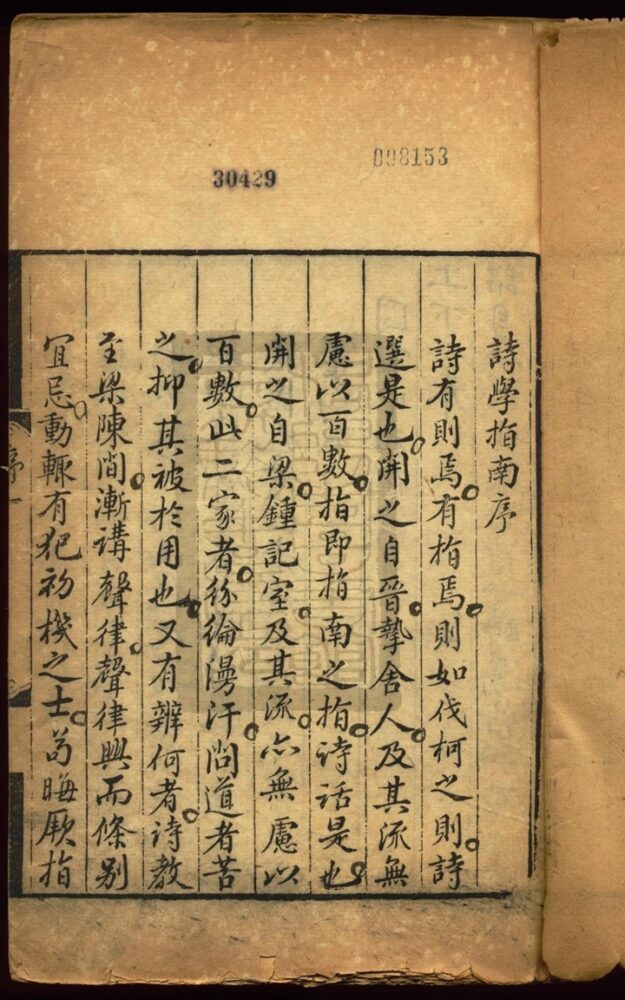 30429
008153
詩學指南序
詩有則焉。有指焉。則如伐柯之則。詩
選是也。開之自晉摯舍人。及其流無
慮以百數。指即指南之指。詩話是也。
開之自梁鍾記室。及其流。亦無慮以
百數。此二家者。紛綸漫汗。問道者苦
之。抑其被於用也。又有辨何者。詩教
至梁陳間。漸講聲律。聲律興而條別
宜忌。動輒有犯初機之士。苟晦厥指
序
一